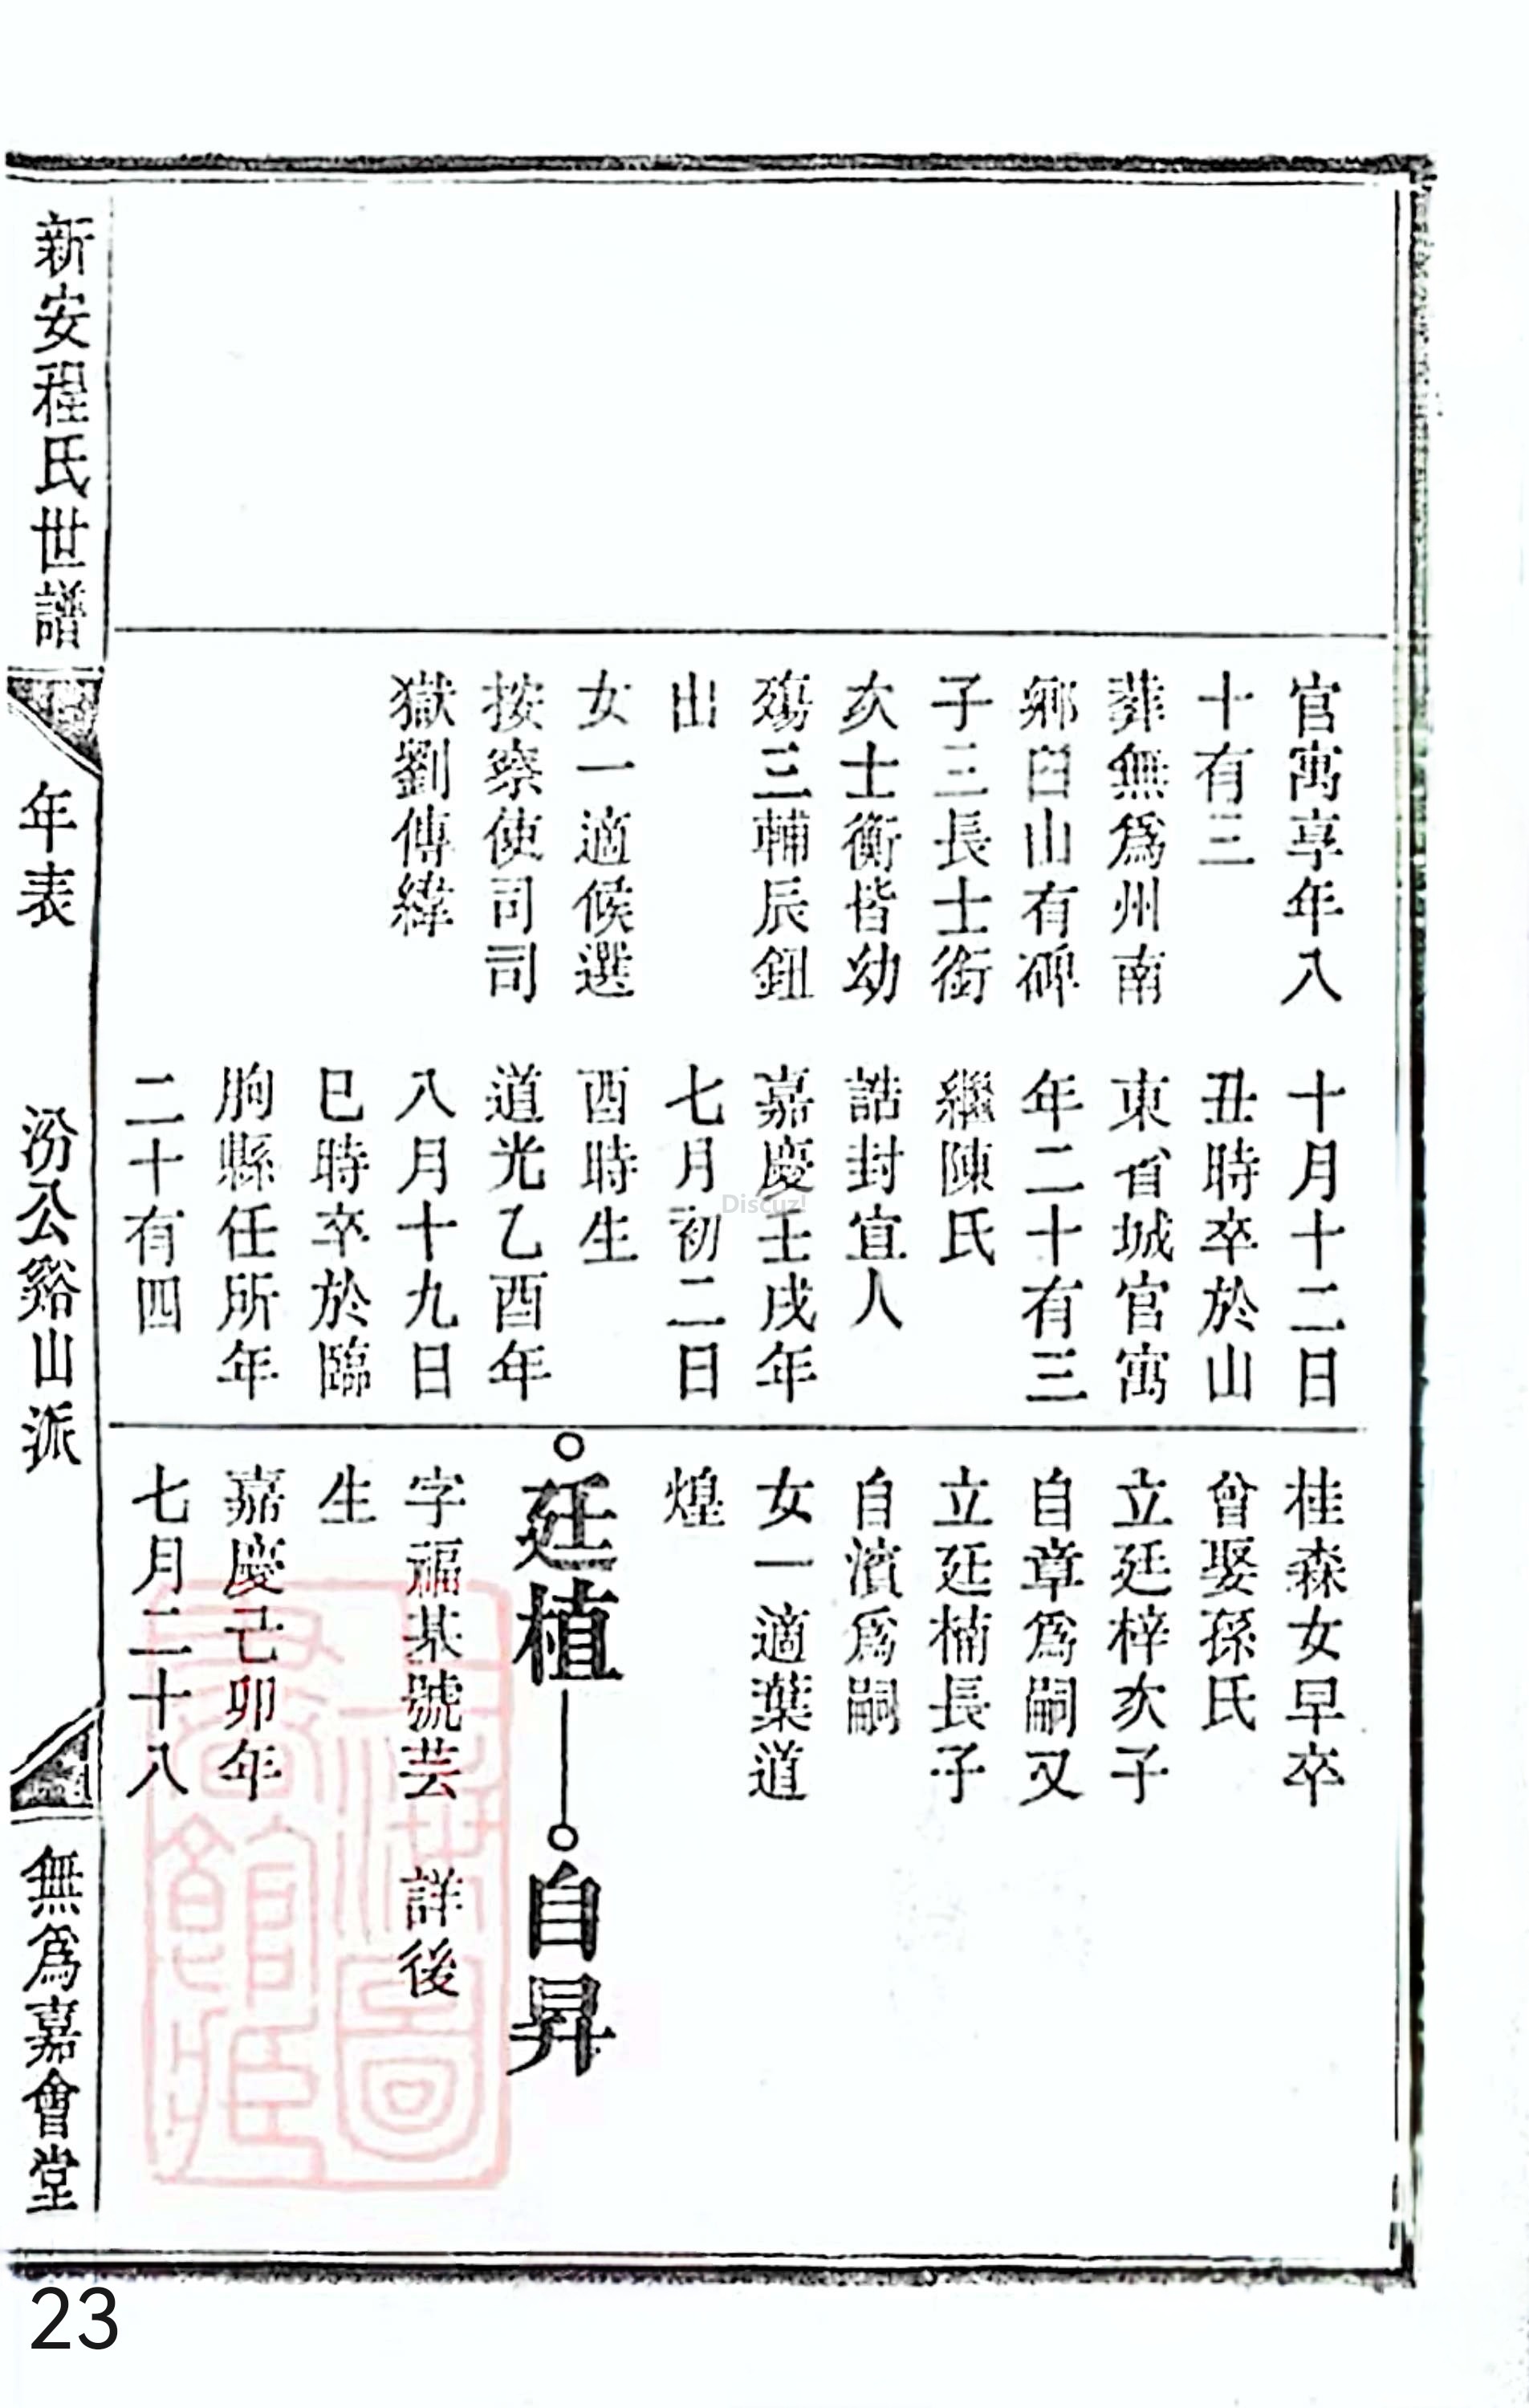 官寓享年八
十有三
葬無為州南
鄉白山有碑
子三長士銜
次士衡皆幼
殤三輔辰鈕
出
女一適候選
按察使司司
獄劉傳緯
十月十二日
丑時卒於山
東省城官寓
年二十有三
繼陳氏
誥封宜人
嘉慶壬戌年
七月初二日
酉時生
道光乙酉年
八月十九日
巳時卒於臨
朐縣任所年
二十有四
桂森女早卒
曾娶孫氏
立廷梓次子
自章為嗣又
立廷楠長子
自濱為嗣
女一適葉道
煌
廷植
字福基號芸
生
嘉慶己卯年
七月二十八
自昇
詳後
新安程氏世譜
年表
汾公谿山派
無為嘉會堂
上海圖書館藏
Discuz!
23